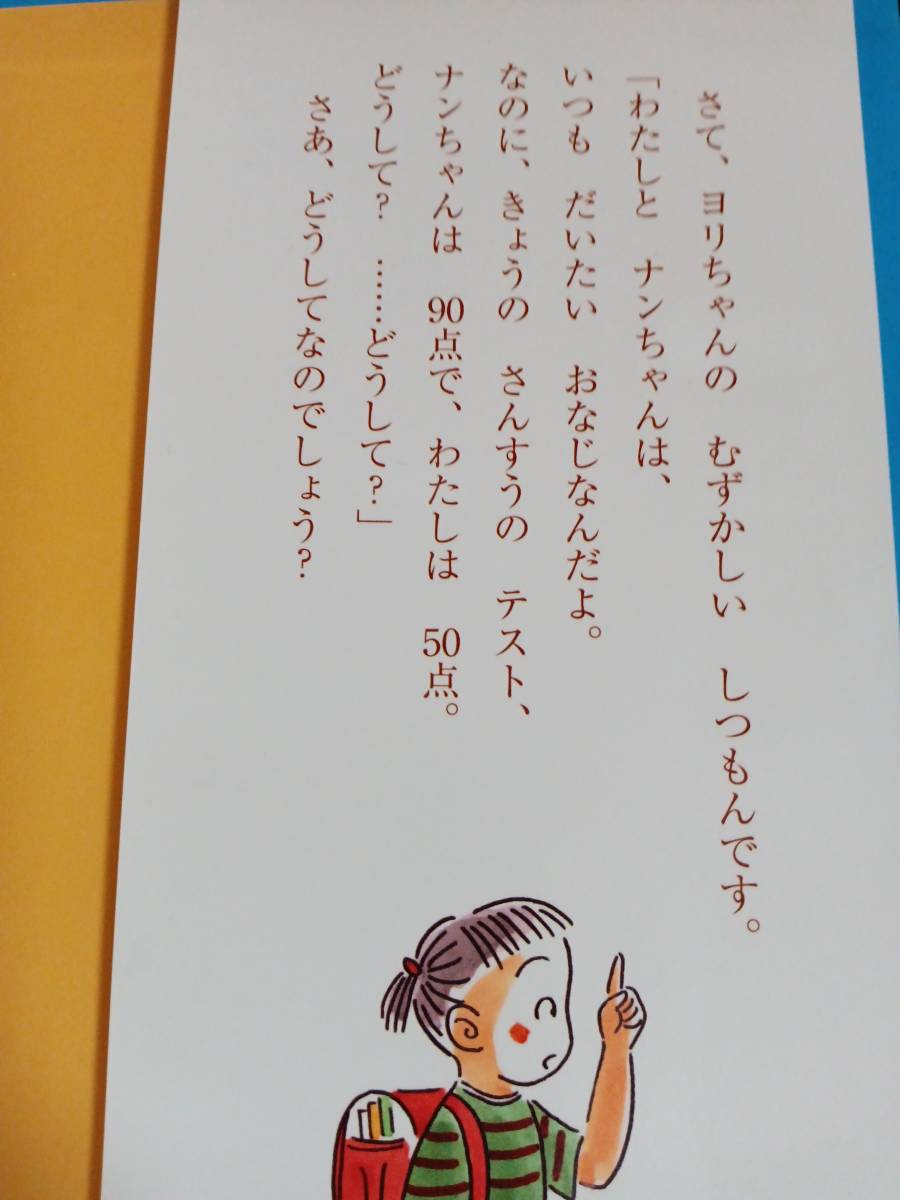 さて、ヨリちゃんの　むずかしい　しつもんです。
「わたしと　ナンちゃんは、
いつも　だいたい　おなじなんだよ。
なのに、きょうの　さんすうの　テスト、
ナンちゃんは　90点で、わたしは　50点。
どうして？　……どうして？」
さあ、どうしてなのでしょう？